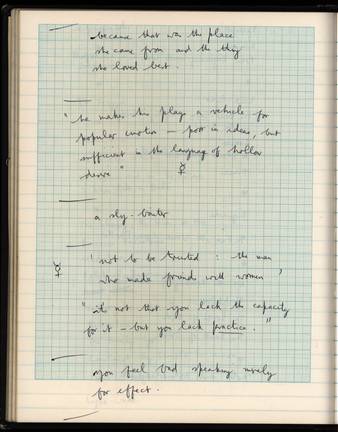 because that was the place
she came from and the thing
she loved best.
"he makes his plays a vehicle for
popular emotion — poor in ideas, but
sufficient in the language of hollow
desire"
a sly-
'not to be trusted : the man
who made friends with women'
"it's not that you lack the capacity
for it – but you lack practice."
you feel bad speaking merely
for effect.